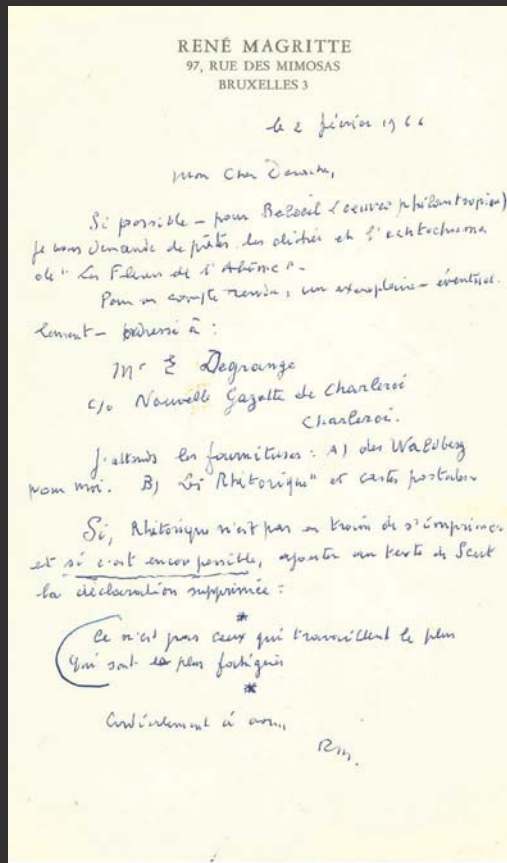 RENÉ MAGRITTE
97, RUE DES MIMOSAS
BRUXELLES 3
le 2 février 1966
Mon Cher
Si possible – pour (oeuvre philantropique)
je vous demande de prêter les clichés et l'ektachrome
de "Les Fleurs de l'Abîme".
Pour un compte rendu, un exemplaire – éventuel
lement – adressé à :
Mr E Degrange
c/o Nouvelle Gazette de Charleroi
Charleroi.
J'attends les fournitures : A) des Waldberg
pour moi. B) "Rhétorique" et cartes postales
Si, Rhétorique n'est pas en train de s'imprimer
et si c'est encore possible, ajouter au texte de Scut
la déclaration supprimée :
*
Ce n'est pas ceux qui travaillent le plus
qui sont le plus fatigués
*
Cordialement à vous,
RM.